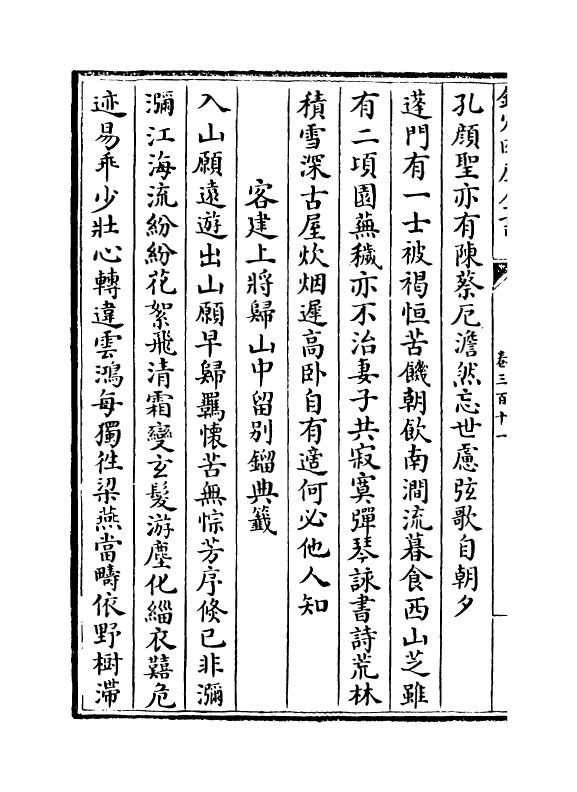 卷三百十一
孔顔聖亦有陳蔡厄澹然忘世慮弦歌自朝夕
蓬門有一士被褐恒苦饑朝飲南澗流暮食西山芝雖
有二項園蕪穢亦不治妻子共寂寞彈琴詠書詩荒林
積雪深古屋炊烟遲高卧自有適何必他人知
客建上將歸山中留别鎦典籖
入山願遠遊出山願早歸羈懷苦無悰芳序倐已非瀰
瀰江海流紛紛花絮飛清霜變玄髮游塵化緇衣囏危
迹易乖少壯心轉違雲鴻每獨徃梁燕當疇依野樹滯